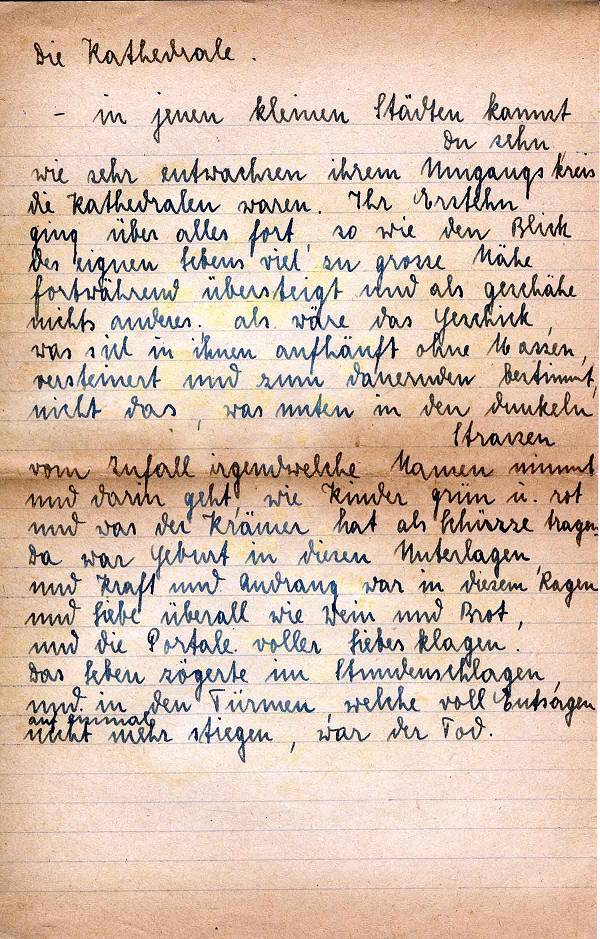 Die Kathedrale.
- in jenen kleinen Städten kannst
du sehn,
wie sehr entwachsen ihrem Umgangskreis
die Kathedralen waren. Ihr Erstehn
ging über alles fort so wie den Blick
des eignen Lebens viel zu grosse Nähe
fortwährend übersteigt und als geschähe
nichts anderes. als wäre das Geschick,
was sich in ihnen aufhäuft ohne Massen,
versteinert und zum dauernden bestimmt,
nicht das, was unten in den dunkeln
Strassen
vom Zufall irgendwelche Namen nimmt
und darin geht, wie Kinder grün u. rot
und was der Krämer hat als Schürze tragen.
Da war Geburt in diesen Unterlagen,
und Kraft und Andrang war in diesem Ragen
und Liebe überall wie Wein und Brot,
und die Portale voller Liebesklagen.
Das Leben zögerte im Stundenschlagen,
und in den Türmen, welche voll Entsagen
auf einmal
nicht mehr stiegen, war der Tod.